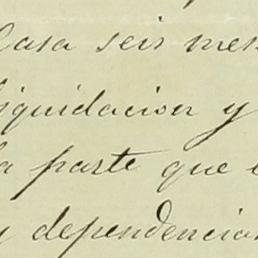 Casa seis mes
liquidacion y
la parte que
y dependencias